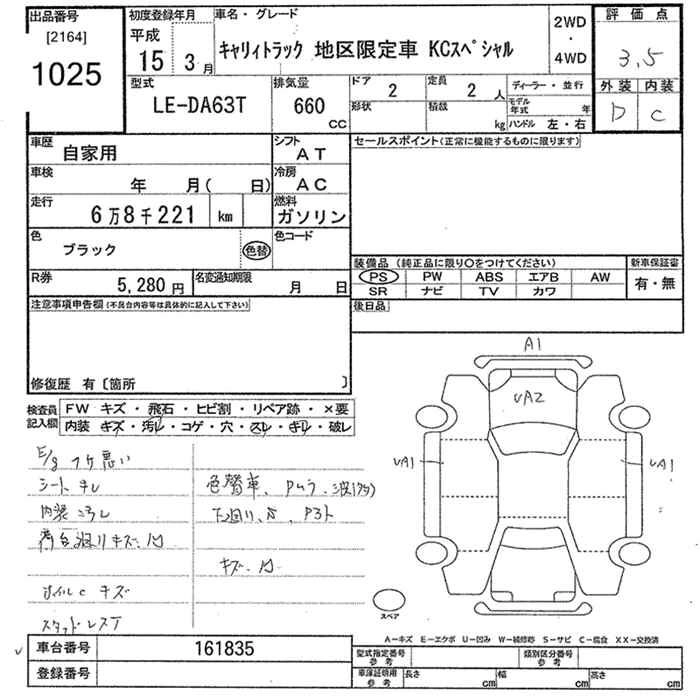 出品番号
[2164]
1025
初度登録年月
平成
15 3月
車名・グレード
キャリィトラック 地区限定車 KCスペシャル
2WD
・
4WD
評価点
3.5
外装 内装
D C
型式
LE-DA63T
排気量
660
CC
ドア
2
定員
2 人
形状
積載
kg
ディーラー・並行
モデル年式 年
ハンドル 左・右
車歴
自家用
シフト
AT
車検
年 月( 日)
冷房
AC
走行
6万8千221 km
燃料
ガソリン
色
ブラック
色替
色コード
R券
5,280円
名変通知期限
月 日
セールスポイント(正常に機能するものに限ります)
装備品 (純正品に限り○をつけてください)
PS PW ABS エアB AW
SR ナビ TV カワ
新車保証書
有・無
後日品
注意事項申告欄 (不具合内容等は具体的に記入して下さい)
修復歴 有〔箇所 〕
検査員記入欄
FW キズ・飛石・ヒビ割・リペア跡・×要
内装 キズ・汚レ・コゲ・穴・スレ・キレ・破レ
E/g フケ悪い
シート キレ
内装
荷台廻りキズ、凹
色替車、Pムラ、波(
下廻り、S、P
キズ、凹
オイルC キズ
スタッドレス
A1
UA2
UA1
UA1
スペア
A-キズ E-エクボ U-凹み W-補修跡 S-サビ C-腐食 XX-交換済
車台番号 161835
登録番号
型式指定番号
参考
類別区分番号
参考
車庫証明用
参考
長さ cm
幅 cm
高さ cm